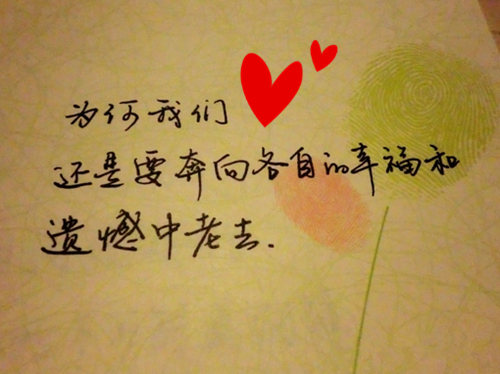 为何我们
还是要奔向各自的幸福和
遗憾中老去.